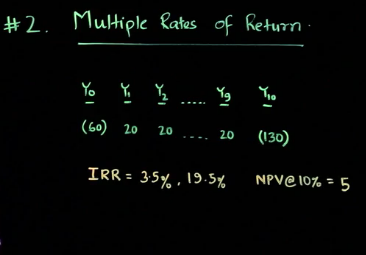 #2. Multiple Rates of Return.
Y0 Y1 Y2 ..... Y9 Y10
(60) 20 20 .... 20 (130)
IRR = 3.5%, 19.5% NPV@10% = 5